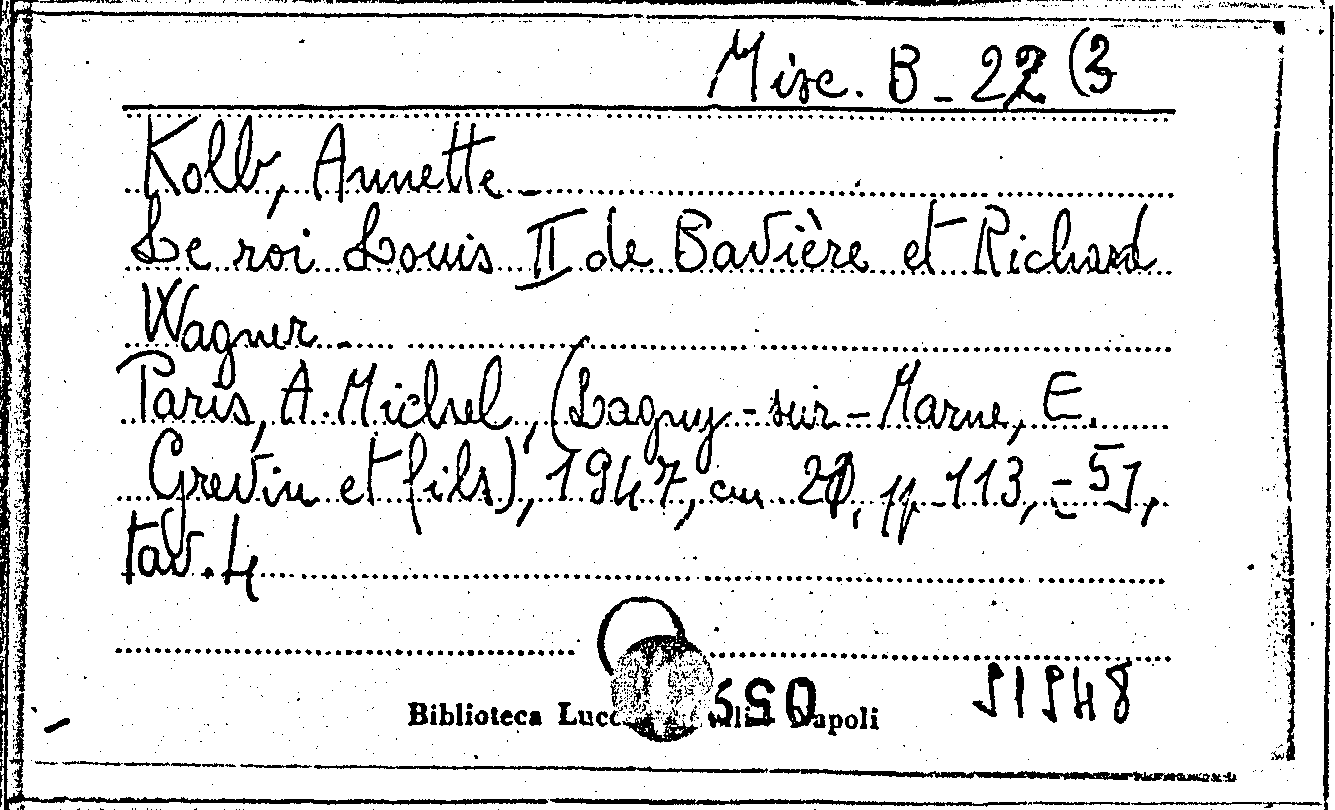 Misc. B - 22 (3
Kolb, Annette -
Le roi Louis II de Bavière et Richard
Wagner -
Paris, A. Michel, (Lagny-sur-Marne, E.
Grevin et fils), 1947, cm 20, pp 113, -5],
tav. 4
Biblioteca Napoli